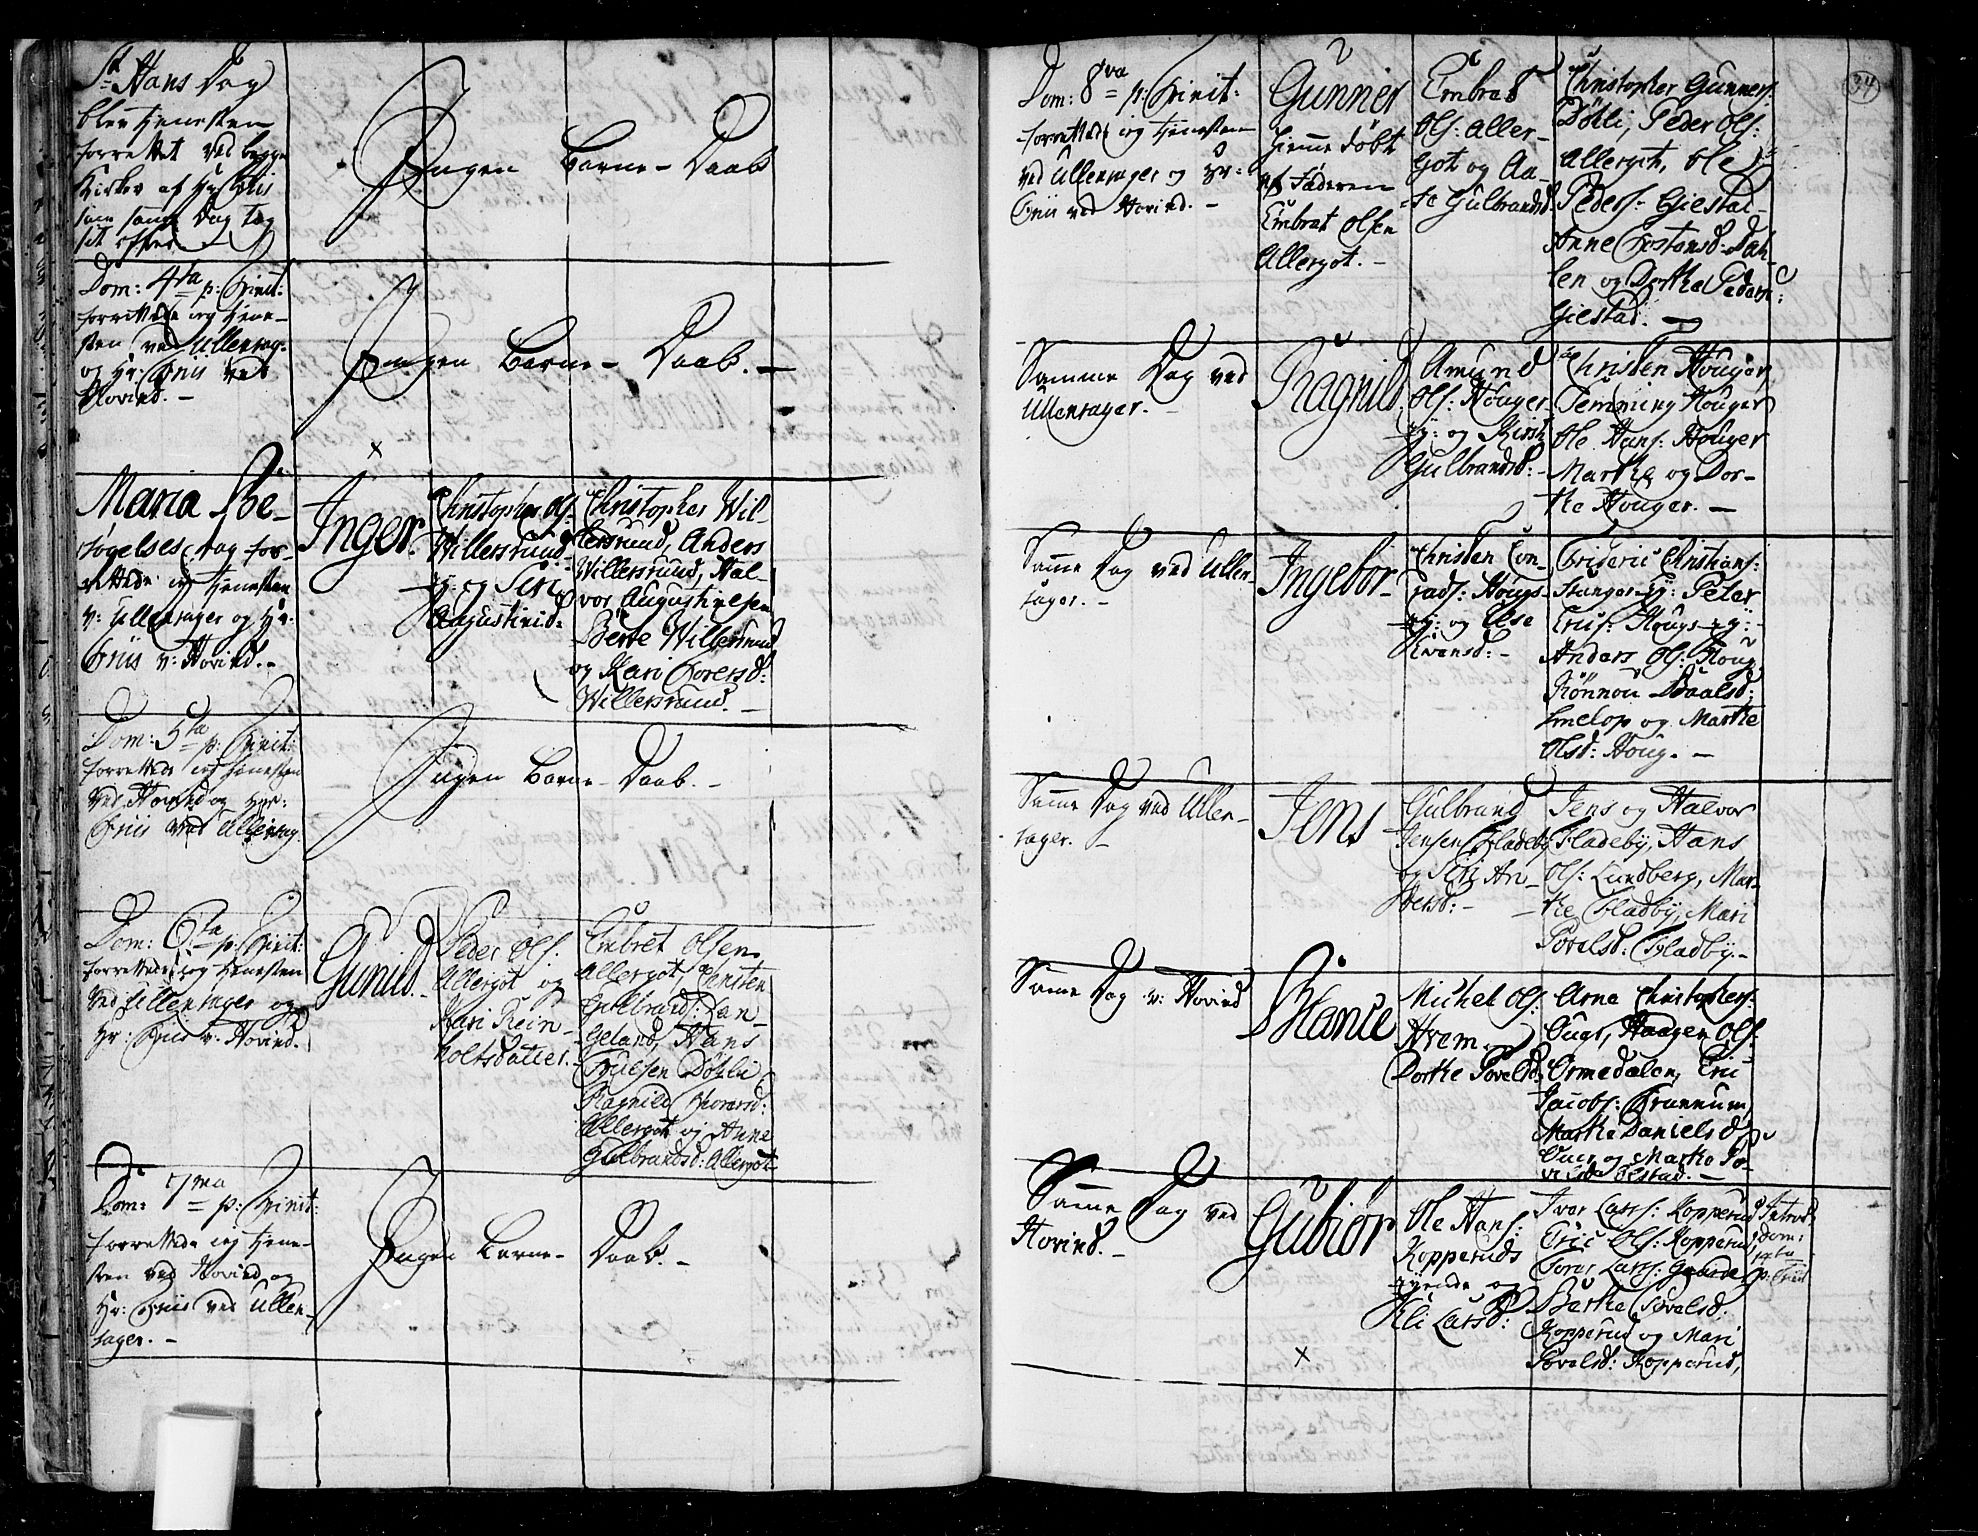 St Hans Dag
blev tienesten
forrettet ved begge
Kirker af Hr Friis
som samme Dag tog
sit offer
Ingen Barne-Daab
Dom: 4ta p: Trinit:
forrettede ieg tiene-
sten ved Ullensag:
og Hr: Friis ved
Hovind. -
Ingen Barne-Daab. -
Maria Be-
søgelses Dag for-
rettede ieg tienesten
v: Ullensager og Hr:
Friis v: Hovind. -
Inger.
Christopher Ols:
Willersrund
ey: og Siri
Augustinid:
Christopher Wil-
lersrund, Anders
Willersrund, Hal-
vor Augustinesen
Berte Willersrund
og Kari Torersd:
Willersrund. -
Dom: 5ta p: Trinit:
forrettede ieg tienesten
ved Hovind og Hr:
Friis ved Ullensag:
Ingen Barne-Daab. -
Dom: 6ta p: Trinit:
forrettede ieg tienesten
ved Ullensager og
Hr: Friis v: Hovind.
Gunild. -
Peder Ols:
Allergot og
Kari Rein-
holtsdatter.
Embret Olsen
Allergot, Christen
Gulbrands: Lan-
geland, Hans
Truelsen Døhli
Ragnild Siversd:
Allergot og Anne
Gulbrandsd: Allergot
Dom: 7ma p: Trinit:
forrettede ieg tiene-
sten ved Hovind og
Hr: Friis ved Ullen-
sager. -
Ingen Barne-Daab. -
34
Dom: 8va p: Trinit:
forrettede ieg tienesten
ved Ullensager og Hr:
Friis ved Hovind. -
Gunner
hieme døbt
af Faderen
Embrat Olsen
Allergot. -
Embrat
Ols: Aller-
got og Aa-
se Gulbrandsd.
Christopher Gunners:
Døhli, Peder Ols:
Allergot, Ole
Peders: Giestad
Anne Torstensd: Dah-
len og Dorthe Peders:
Giestad. -
Samme Dag ved
Ullensager. -
Ragnild.
Amund
Ols: Houger
ey: og Kirsti
Gulbrandsd: -
Christen Houger
Femming Houger
Ole Hans: Houger
Marthe og Dor-
the Houger. -
Samme Dag ved Ullen-
sager. -
Ingebor-
Christen Con-
rads: Houg-
ey: og Else
Svensd: -
Frideric Christians:
Stanger-ey: Peter
Erics: Houg-ey:
Anders Ols: Houg
Rønnou Paalsd:
Imelop og Marthe
Olsd: Houg. -
Samme Dag ved Ullen-
sager. -
Jens
Gulbrand
Jensen Fladeby
og Siri An-
dersd: -
Jens og Halvor
Fladeby, Hans
Ols: Lundberg, Mar-
the Fladby, Mari
Povelsd: Fladby. -
Samme Dag v: Hovind
Hance
Michel Ols:
Hvem og
Dorthe Povelsd:
Arne Christophers:
Ouer, Haagen Ols:
Ormedalen, Eric
Jacobs: Trannum,
Marthe Danielsd:
Ouer og Marthe Po-
velsd: Olstad. -
Samme Dag ved
Hovind. -
Gubiør
Ole Hans:
Kopperuds
eyende og
Eli Larsd:
Ivar Lars: Kopperud
Eric Ols: Kopperud
Torer Lars:
Berthe Povelsd:
Kopperud og Mari
Povelsd: Kopperud,
Introd:
Dom:
p: Trinit